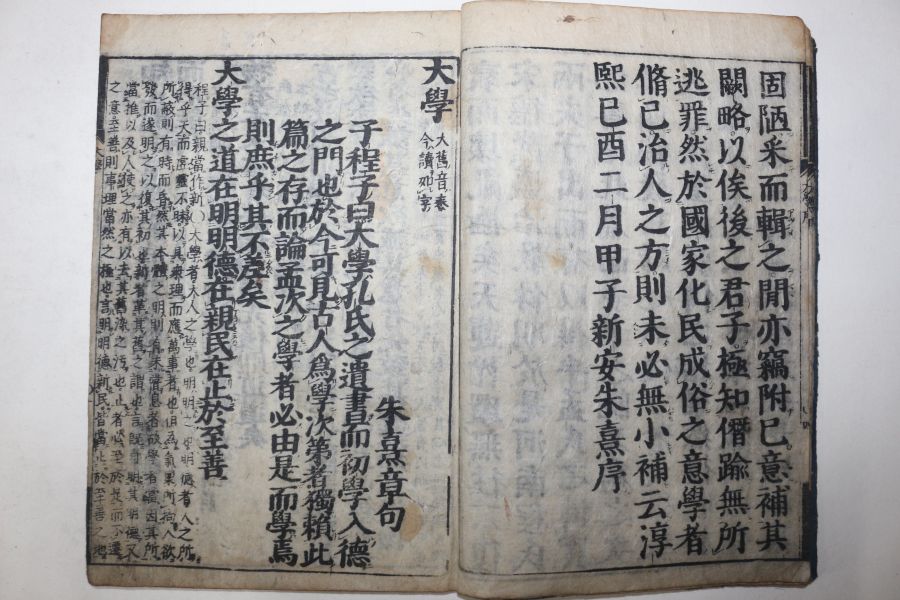 固陋采而輯之閒亦竊附己意補其
闕略以俟後之君子極知僭踰無所
逃罪然於國家化民成俗之意學者
脩己治人之方則未必無小補云淳
熙己酉二月甲子新安朱熹序
大學
大舊音泰
今讀如字
朱熹章句
子程子曰大學孔氏之遺書而初學入德
之門也於今可見古人爲學次第者獨賴此
篇之存而論孟次之學者必由是而學焉
則庶乎其不差矣
大學之道在明明德在親民在止於至善
程子曰親當作新○大學者大人之學也明明之也明德者人之所
得乎天而虛靈不昧以具衆理而應萬事者也但爲氣稟所拘人欲
所蔽則有時而昏然其本體之明則有未嘗息者故學者當因其所
發而遂明之以復其初也新者革其舊之謂也言旣自明其明德又
當推以及人使之亦有以去其舊染之汚也止者必至於是而不遷
之意至善則事理當然之極也言明明德新民皆當止於至善之地